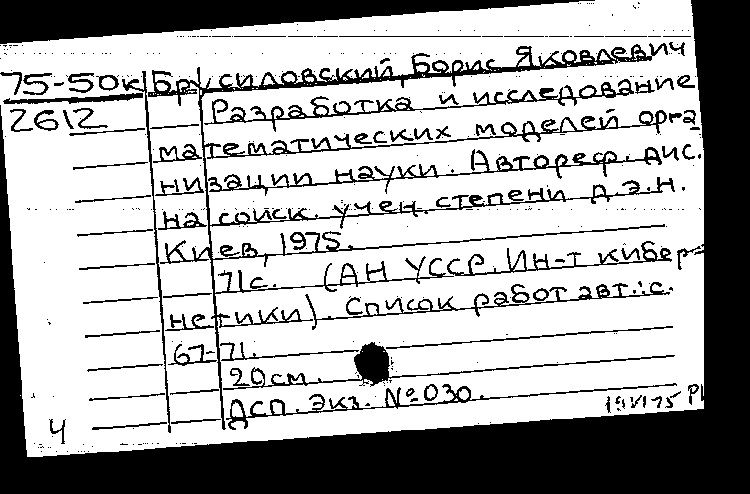 75-50к Брусиловский, Борис Яковлевич
2612 Разработка и исследование
математических моделей орга-
низации науки. Автореф. дис.
на соиск. учен. степени д.э.н.
Киев, 1975.
71с. (АН УССР. Ин-т кибер-
нетики). Список работ авт.: с.
67-71.
20см.
ДСП. Экз. №030.
4